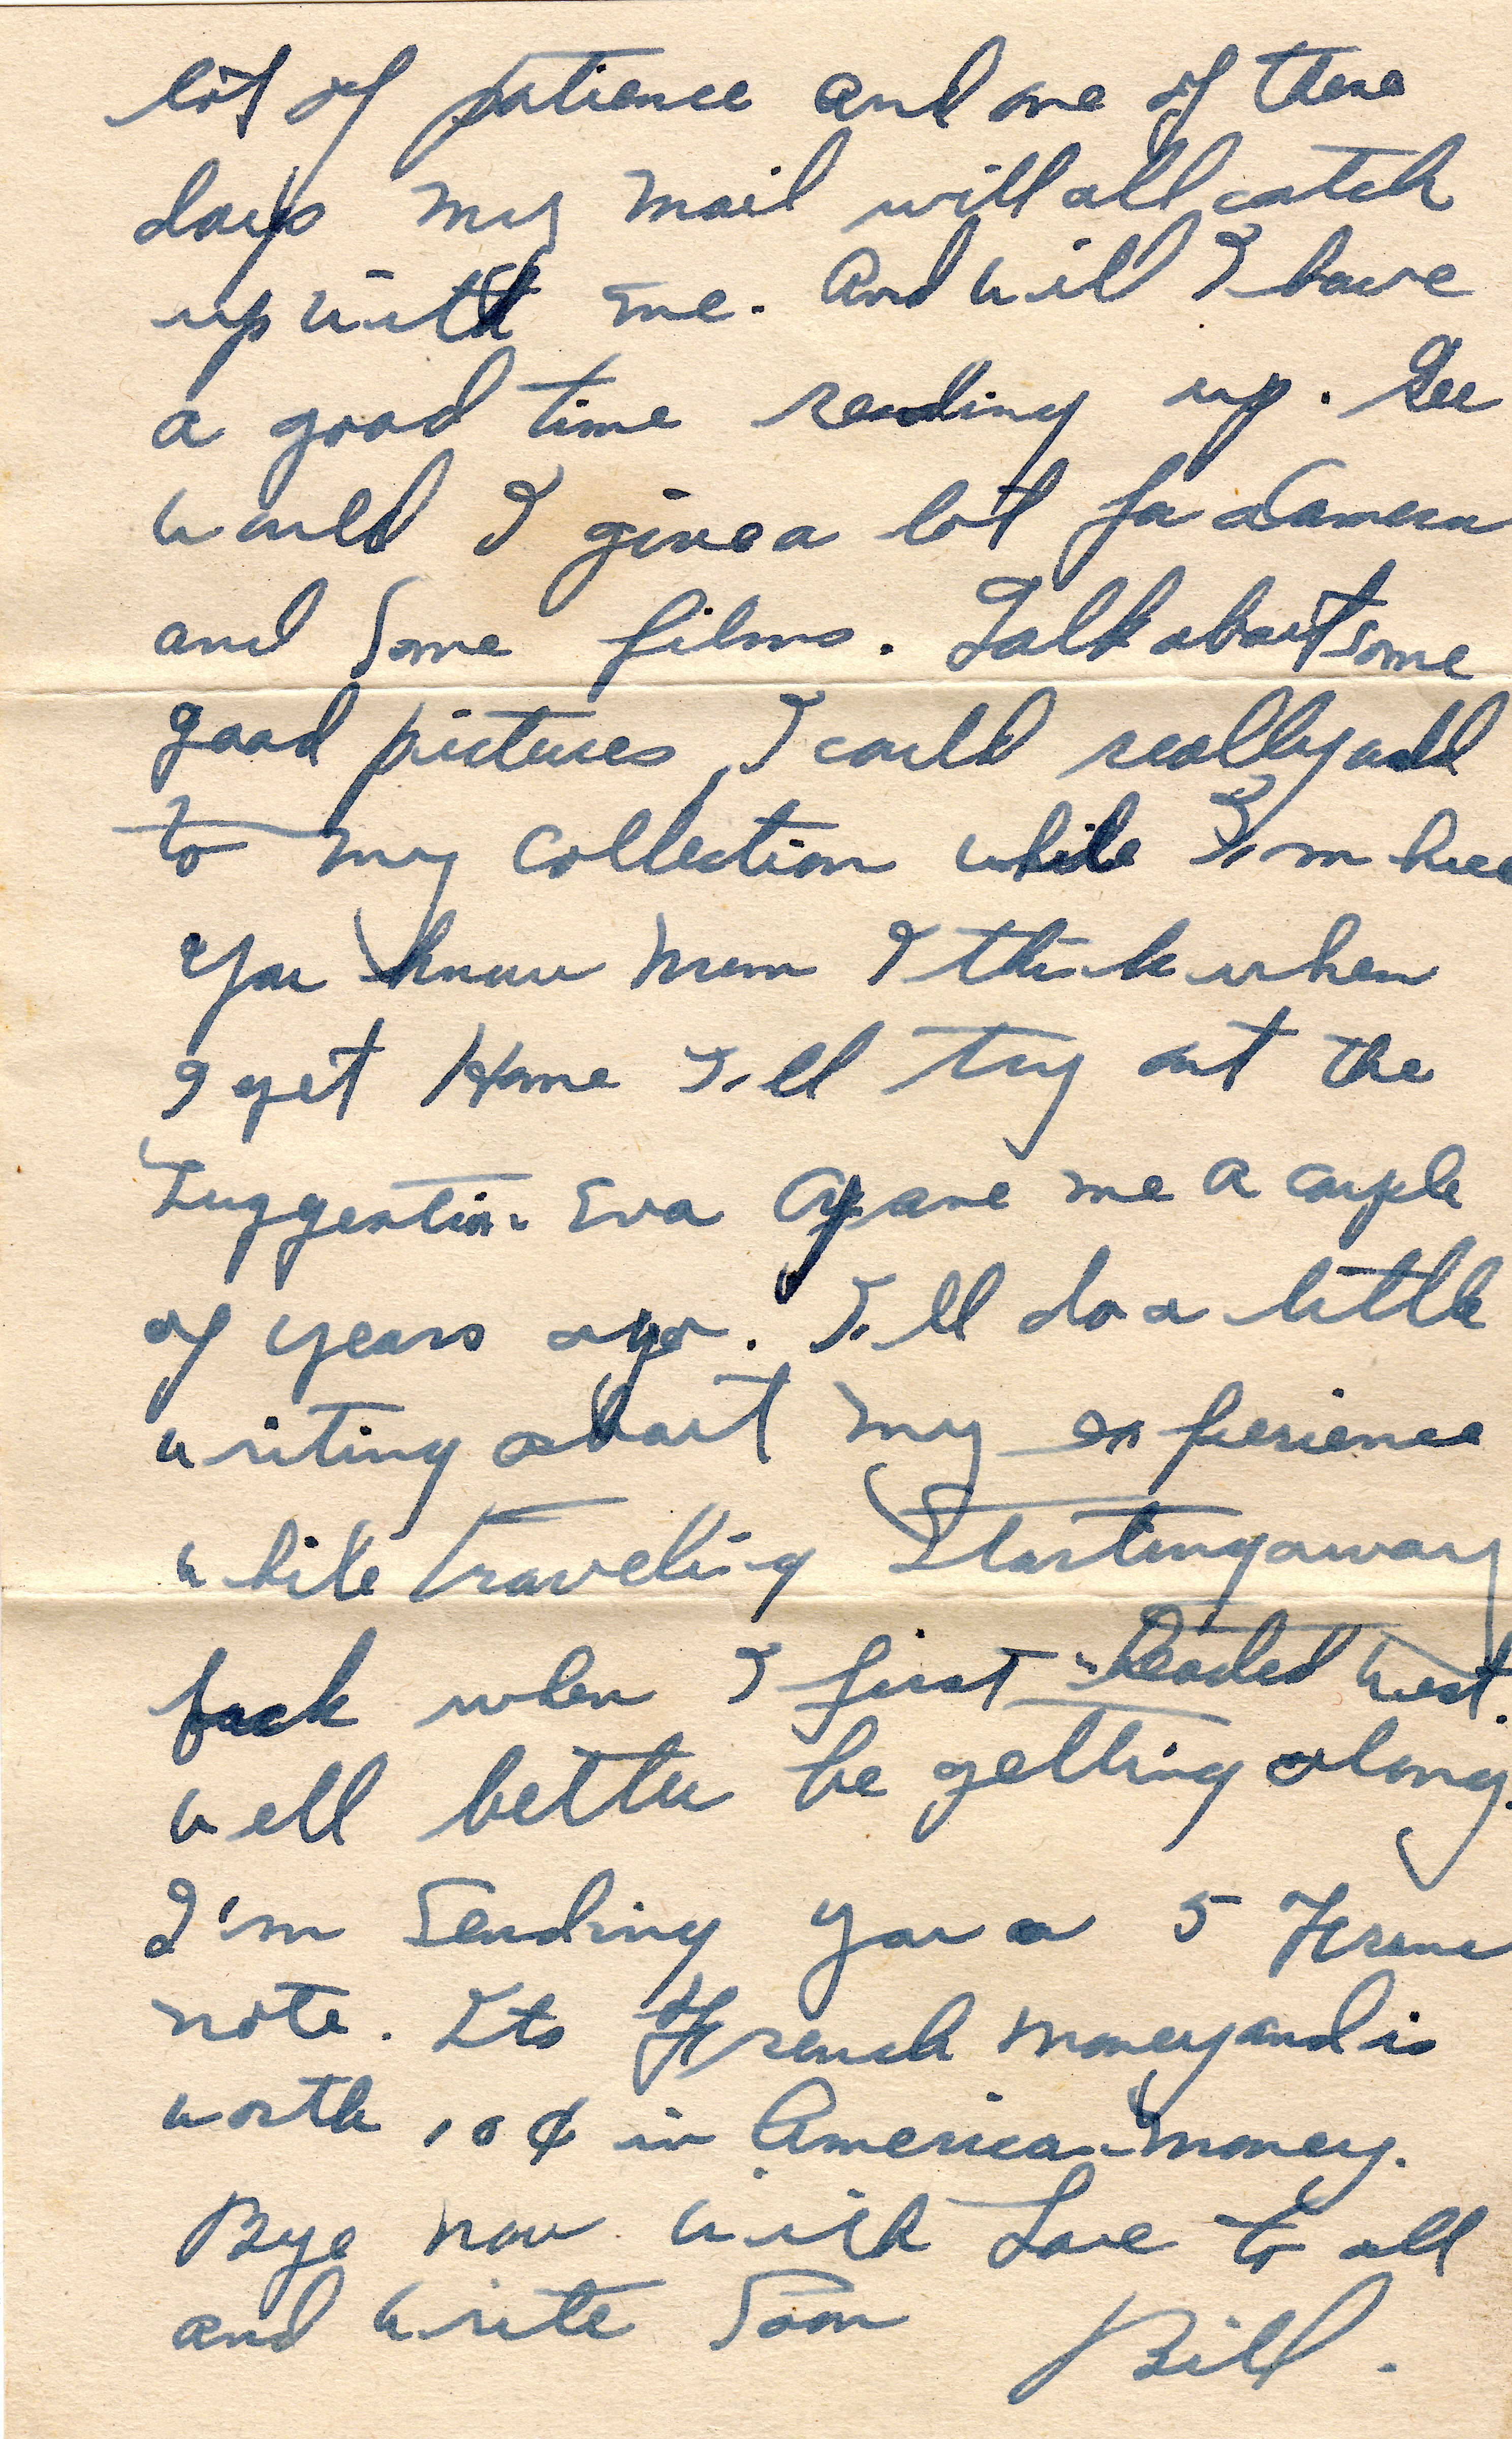 lot of patience and one of these
days my mail will all catch
up with me. And will I have
a good time reading up. Gee
would I give a lot for a Camera
and Some films. Talk about some
good pictures, I could really add
to my collection while I'm here
You know Mom I think when
I get Home I'll try out the
Suggestion Eva Gave me a couple
of years ago. I'll do a little
writing about my experience
while traveling Starting away
back when I first headed West.
Well better be getting along.
I'm Sending you a 5 Franc
note. Its French money and is
worth 10¢ in American money.
Bye now with Love to all
and write Soon Bill.